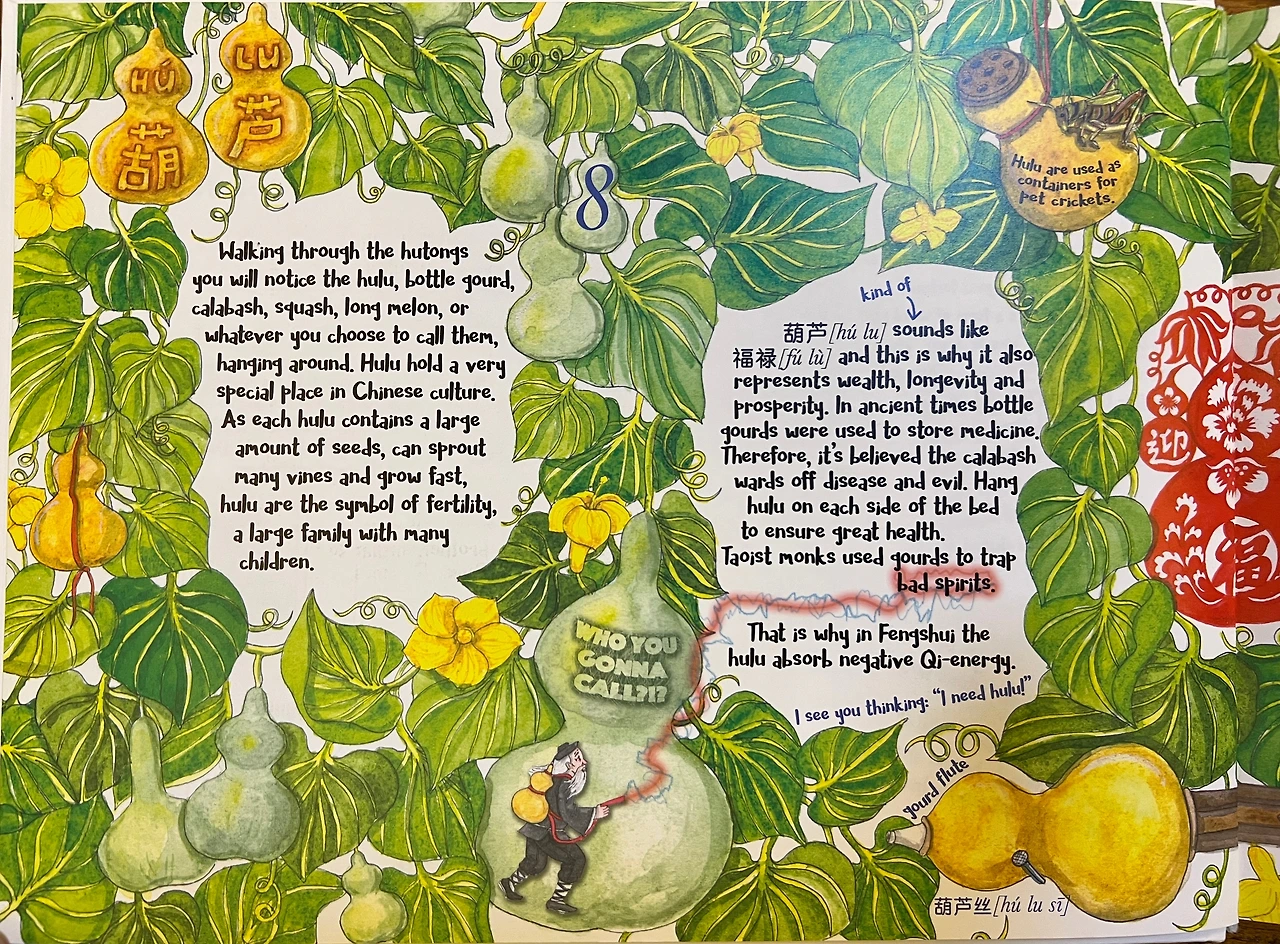 HÚ
葫
LU
芦
8
Hulu are used as
containers for
pet crickets.
Walking through the hutongs
you will notice the hulu, bottle gourd,
calabash, squash, long melon, or
whatever you choose to call them,
hanging around. Hulu hold a very
special place in Chinese culture.
As each hulu contains a large
amount of seeds, can sprout
many vines and grow fast,
hulu are the symbol of fertility,
a large family with many
children.
kind of
葫芦[hú lu] sounds like
福禄[fú lù] and this is why it also
represents wealth, longevity and
prosperity. In ancient times bottle
gourds were used to store medicine.
Therefore, it's believed the calabash
wards off disease and evil. Hang
hulu on each side of the bed
to ensure great health.
Taoist monks used gourds to trap
bad spirits.
That is why in Fengshui the
hulu absorb negative Qi-energy.
I see you thinking: "I need hulu!"
WHO YOU
GONNA
CALL?!?
gourd flute
葫芦丝[hú lu sī]
迎
福